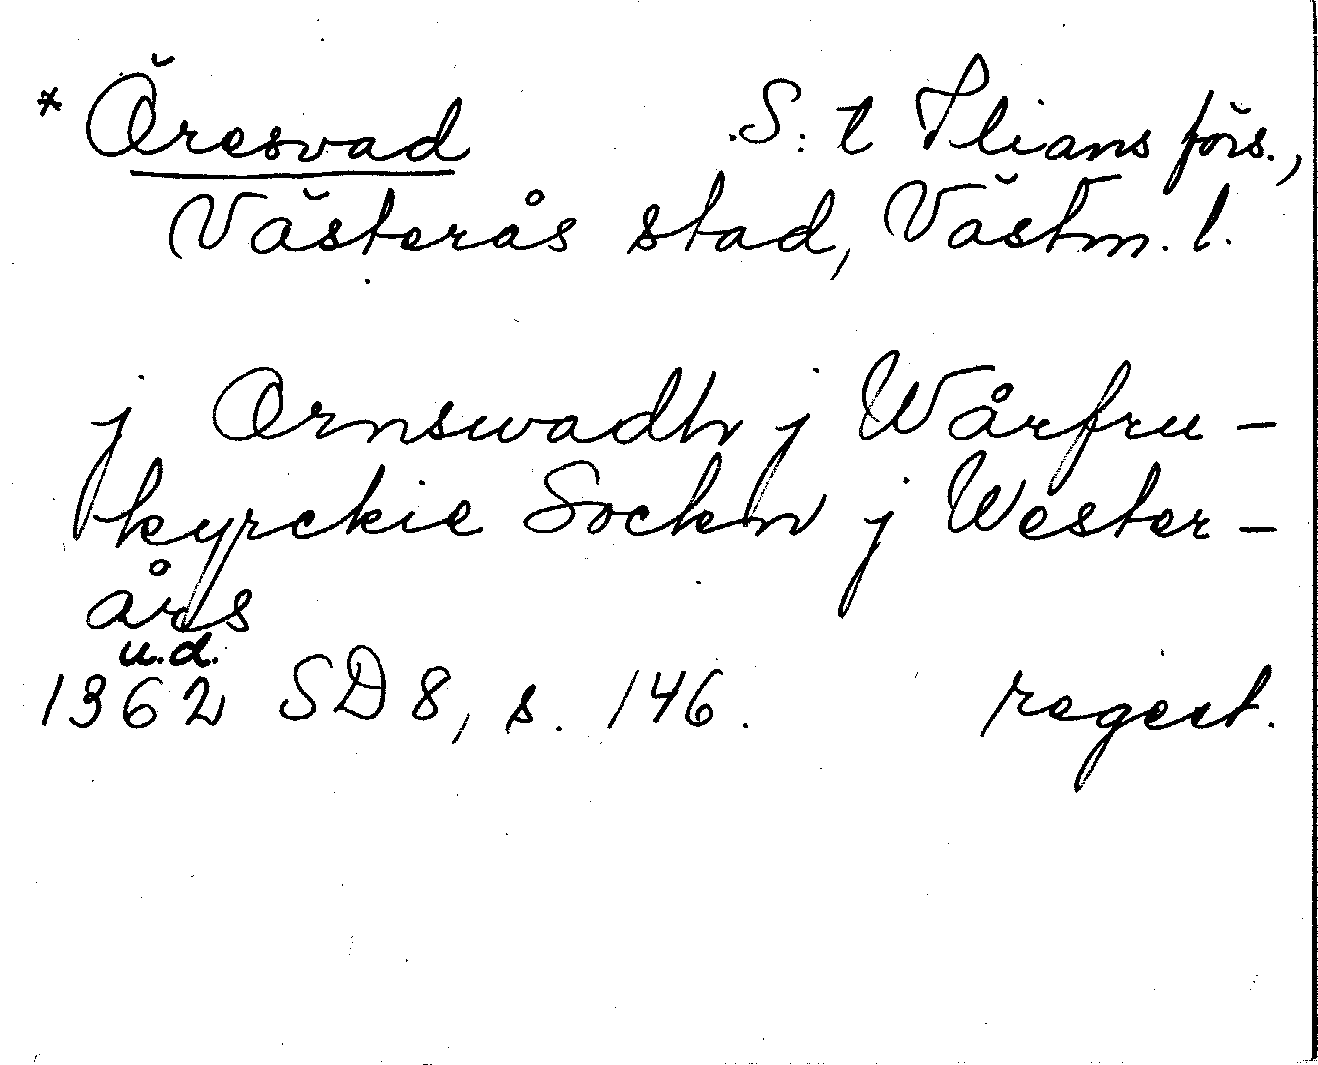 * Öresvad S:t Ilians förs.,
Västerås stad, Västm. l.
j Ornswadh j Wårfru-
kyrckie Sockn j Wester-
års
u.d.
1362 SD 8, s. 146. regest.